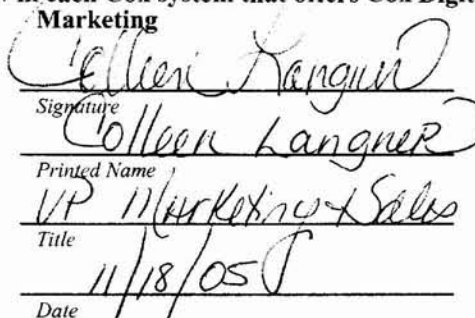 each Cox system that offers Cox Digit
Marketing
Colleen Langner
Signature
Colleen Langner
Printed Name
VP Marketing & Sales
Title
11/18/05
Date